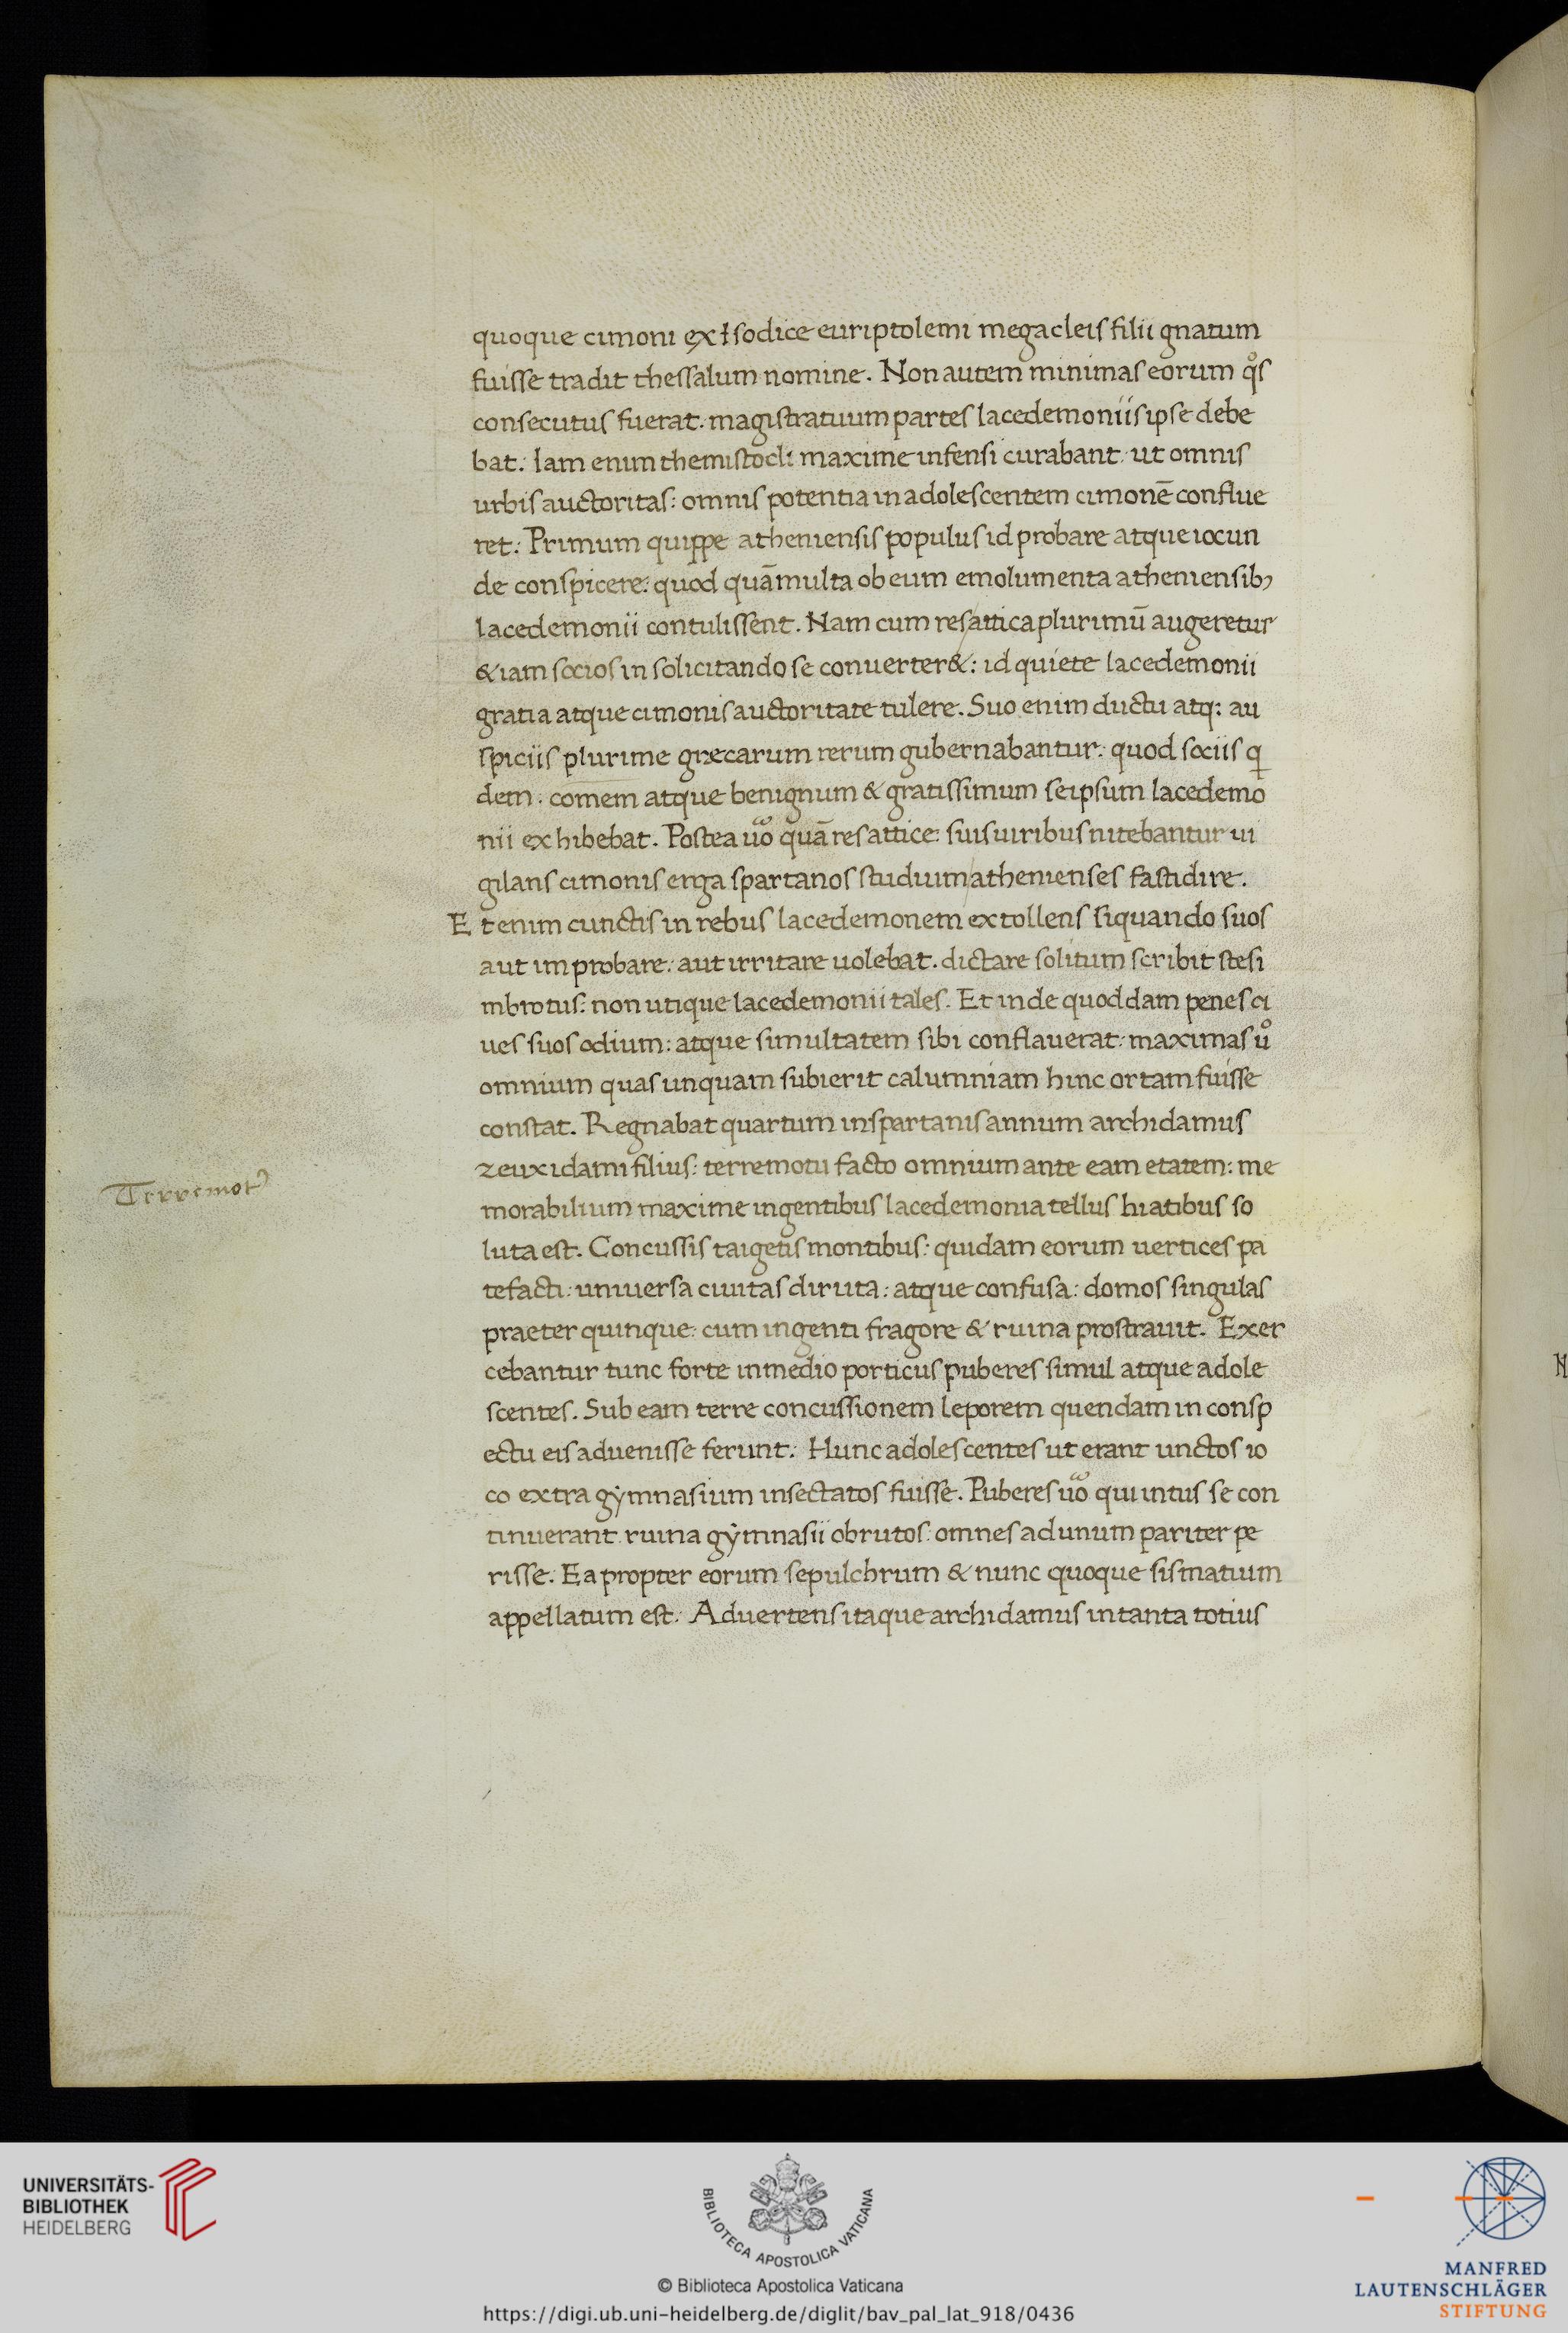 quoque cimoni ex ƚsodice euriptolemi megacleis filii gnatum
fuisse tradit thessalum nomine. Non autem minimas eorum qͦs
consecutus fuerat: magistratuum partes lacedemoniis ipse debe
bat: Iam enim themistocli maxime infensi curabant: ut omnis
urbis auctoritas: omnis potentia in adolescentem cimonē conflue
ret: Primum quippe atheniensis populus id probare atque iocun
de conspicere: quod quā multa ob eum emolumenta atheniensibꝫ
lacedemonii contulissent. Nam cum res attica plurimū augeretur
& iam socios in solicitando se conuerter&: id quiete lacedemonii
gratia atque cimonis auctoritate tulere. Suo enim ductu atq: au
spiciis plurime grecarum rerum gubernabantur: quod sociis qi
dem. comem atque benignum & gratissimum seipsum lacedemo
nii exhibebat. Postea uͦo quā res attice: suis uiribus nitebantur ui
gilans cimonis erga spartanos studuim athenienses fastidire.
Etenim cunctis in rebus lacedemonem extollens siquando suos
aut improbare: aut irritare uolebat. dictare solitum scribit stesi
mbrotus: non utique lacedemonii tales. Et inde quoddam penes ci
ues suos odium: atque simultatem sibi conflauerat: maximas uͦ
omnium quas unquam subierit calumniam hinc ortam fuisse
constat. Regnabat quartum in spartanis annum archidamus
zeuxidami filius: terremotu facto omnium ante eam etatem: me
Terremotꝰ
morabilium maxime ingentibus lacedemonia tellus hiatibus so
luta est. Concussis taigetis montibus: quidam eorum uertices pa
tefacti: uniuersa ciuitas diruta: atque confusa: domos singulas
praeter quinque: cum ingenti fragore & ruina prostrauit. Exer
cebantur tunc forte in medio porticus puberes simul atque adole
scentes. Sub eam terre concussionem leporem quendam in consp
ectu eis aduenisse ferunt: Hunc adolescentes ut erant unctos io
co extra gymnasium insectatos fuisse. Puberes uͦo qui intus se con
tinuerant ruina gymnasii obrutos: omnes ad unum pariter pe
risse. Ea propter eorum sepulchrum & nunc quoque sismatium
appellatum est: Aduertens itaque archidamus in tanta totius
UNIVERSITÄTS-
BIBLIOTHEK
HEIDELBERG
BIBLIOTECA APOSTOLICA VATICANA
© Biblioteca Apostolica Vaticana
https://digi.ub.uni-heidelberg.de/diglit/bav_pal_lat_918/0436
MANFRED
LAUTENSCHLÄGER
STIFTUNG